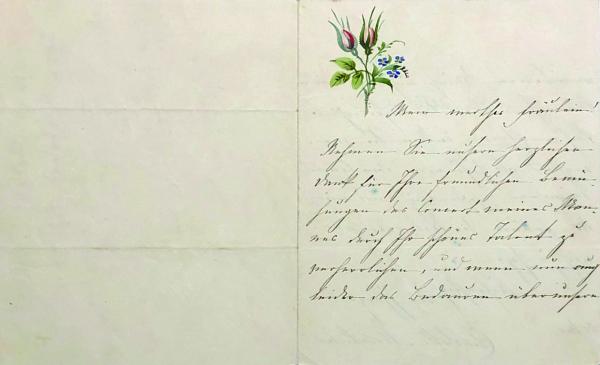 Mein werthes Fräulein!
Nehmen Sie unsern herzlichen
Dank für Ihre freundlichen Bemü-
hungen das Concert meines Man-
nes durch Ihr schönes Talent zu
verherrlichen, und wenn nun auch
leider das Bedauern über unsere